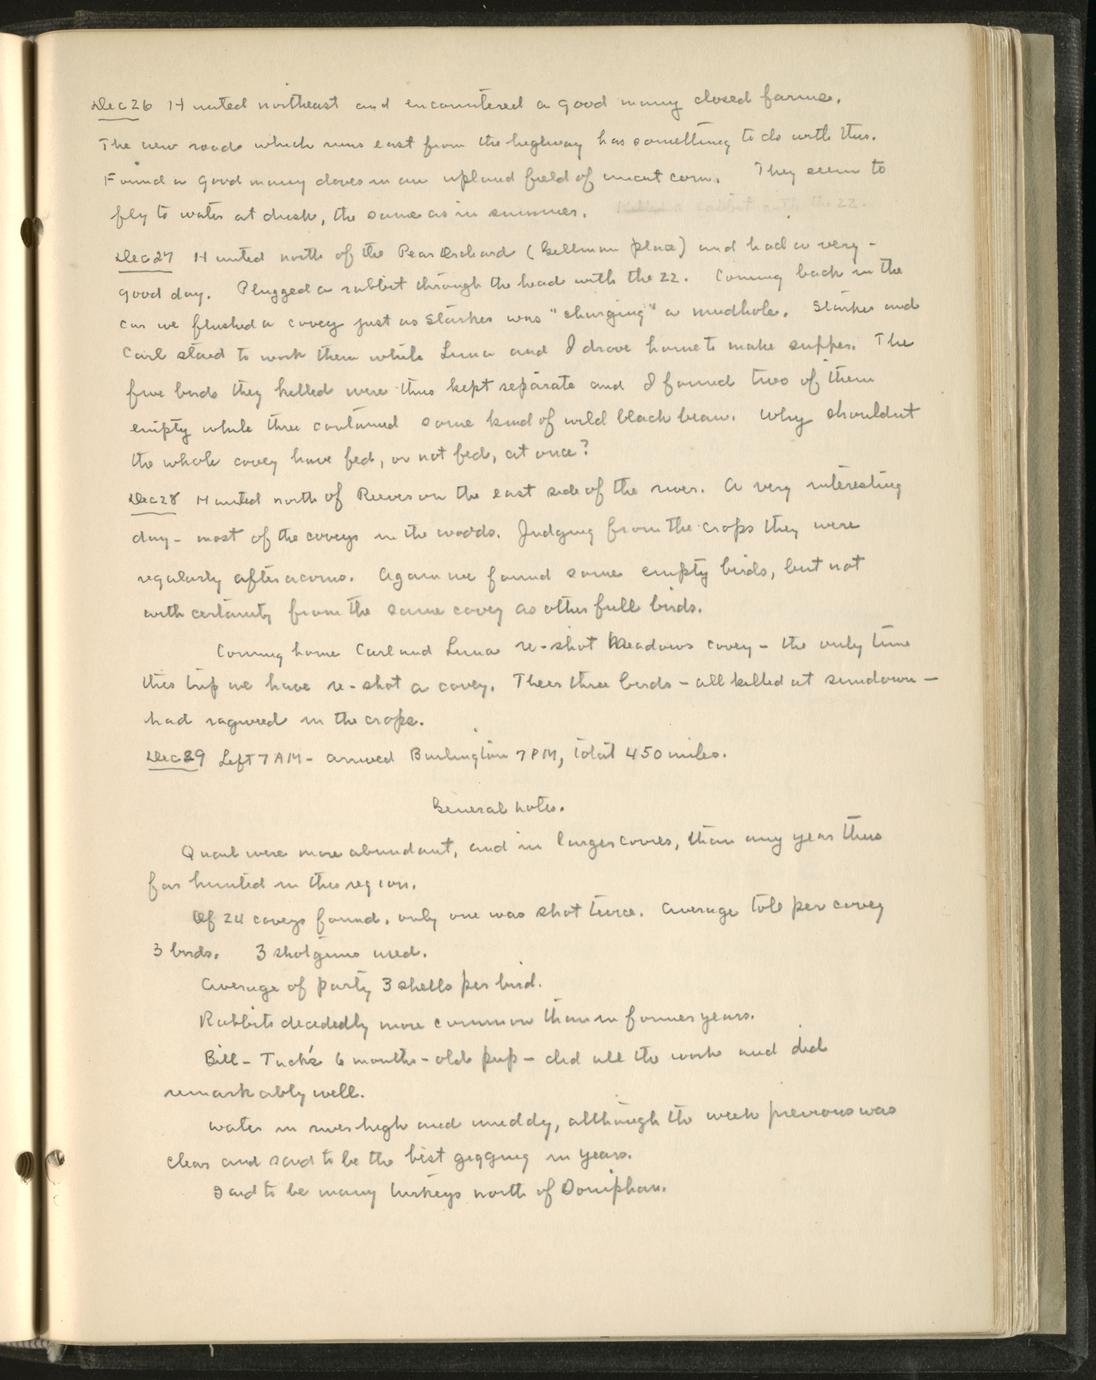 Dec 26 Hunted northeast and encountered a good many closed farms.
The new road which runs east from the highway has something to do with this.
Found a good many doves in an upland field of uncut corn. They seem to
fly to water at dusk, the same as in summer.
Dec 27 Hunted north of the Pear Orchard (Gellman place) and had a very
good day. Plugged a rabbit through the head with the 22. Coming back in the
car we flushed a covey just as Starker was "charging" a mudhole. Starker and
Carl staid to work them while Luna and I drove home to make supper. The
five birds they killed were thus kept separate and I found two of them
empty while three contained some kind of wild black bean. Why shouldnt
the whole covey have fed, or not fed, at once?
Dec 28 Hunted north of Reeves on the east side of the river. A very interesting
day - most of the coveys in the woods. Judging from the crops they were
regularly after acorns. Again we found some empty birds, but not
with certainty from the same covey as other full birds.
Coming home Carl and Luna re-shot Meadows covey - the only time
this trip we have re-shot a covey. Theer three birds - all killed at sundown -
had ragweed in the crops.
Dec 29 Left 7 AM - arrived Burlington 7 PM, total 450 miles.
General notes.
Quail were more abundant, and in larger covies, than any year thus
far hunted in this region.
Of 24 coveys found, only one was shot twice. Average toll per covey
3 birds. 3 shotguns used.
Average of party 3 shells per bird.
Rabbits decidedly more common than in former years.
Bill - Tuck's 6 months-old pup - did all the work and did
remarkably well.
Water in river high and muddy, although the week previous was
clear and said to be the best gigging in years.
Said to be many turkeys north of Doniphan.